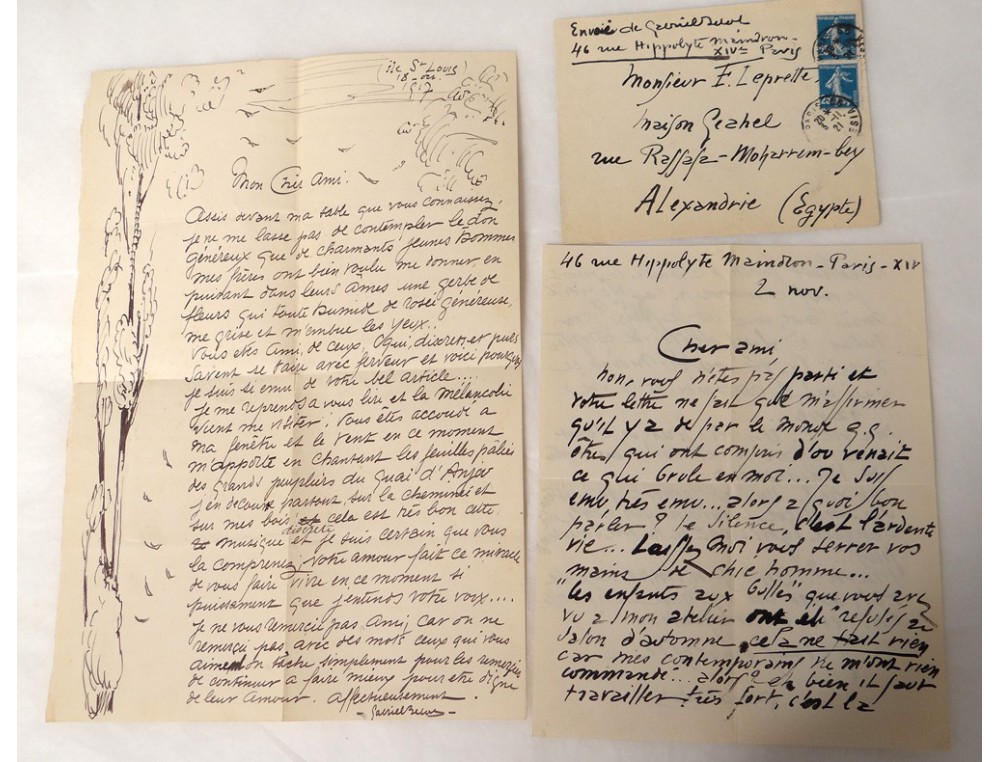 (île St Louis)
18 - oct.
1917
Mon Cher Ami.
Assis devant ma table que vous connaissez,
je ne me lasse pas de contempler le don
généreux que de charmants jeunes hommes
mes frères ont bien voulu me donner en
puisant dans leurs âmes une gerbe de
fleurs qui toute humide de rosée généreuse,
me grise et m'embue les yeux..
Vous êtes Ami, de ceux, qui, discret, et purs
savent se taire avec ferveur et voici pourquoi
je suis si emu de votre bel article....
Je me reprends a vous lire et la mélancolie
vient me visiter; vous êtes accoudé a
ma fenêtre et le vent en ce moment
m'apporte en chantant les feuilles pâlies
des grands peupliers du Quai d'Anjou
j'en decouvre partout, sur la cheminée et
sur mes bois cela est très bon cette
musique discrète et je suis certain que vous
la comprenez, votre amour fait ce miracle
de vous faire vivre en ce moment si
puissamment que j'entends votre voix....
Je ne vous remercie pas Ami, car on ne
remercie pas avec des mots ceux qui vous
aiment on tâche simplement pour les remercier
de continuer a faire mieux pour etre digne
de leur amour. Affectueusement.
Gabriel Belot
Envoi de Gabriel Belot
46 rue Hippolyte Maindron -
XIVe Paris
Monsieur E. Leprette
maison Geahel
rue Raffafa - Moharrem - bey
Alexandrie (Egypte)
46 rue Hippolyte Maindron - Paris - XIV
2 nov.
Cher ami
non, vous n'êtes pas parti et
votre lettre ne fait que m'affirmer
qu'il y a de par le monde q.q.
êtres qui ont compris d'ou venait
ce qui brule en moi... Je suis
emu très emu... alors a quoi bon
parler? le silence, c'est l'ardente
vie... Laissez moi vous serrer vos
mains de chic homme...
"les enfants aux bulles" que vous avez
vu a mon atelier ont été "refusés au
Salon d'automne, cela ne fait rien
car mes contemporains ne m'ont rien
commandé... alors? eh bien il faut
travailler très fort, c'est la